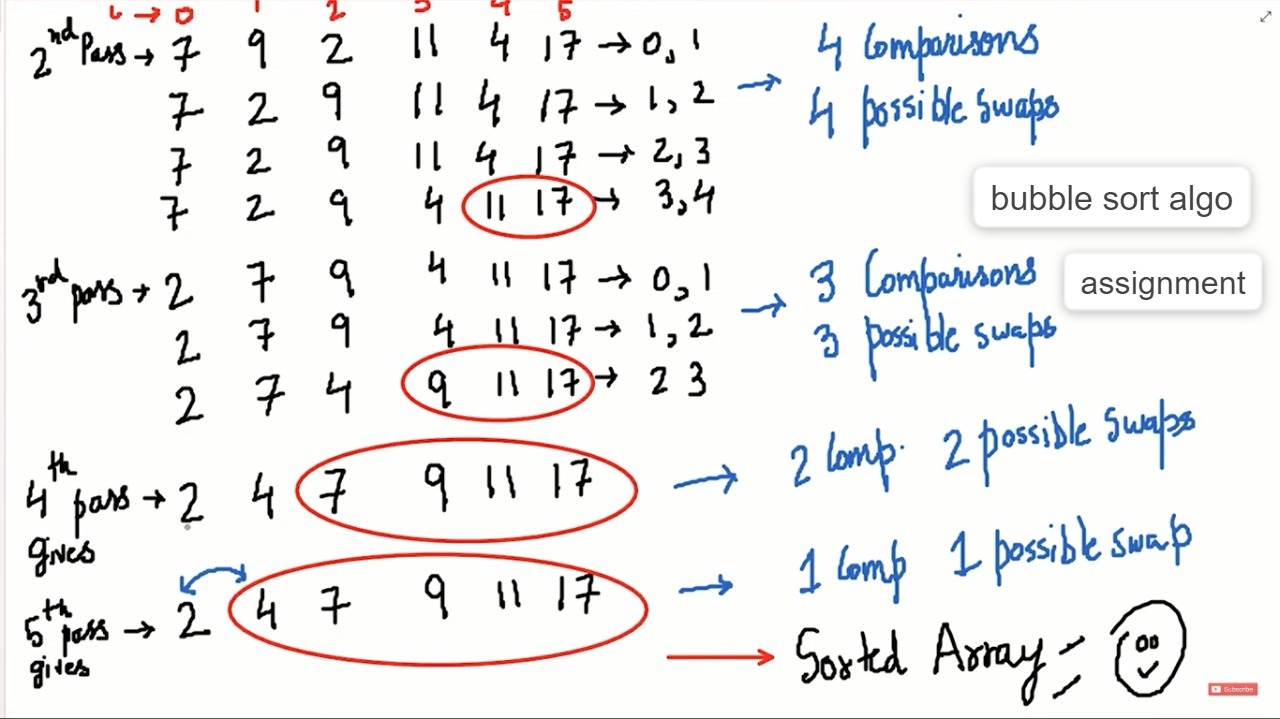 i → 0 1 2 3 4 5
2nd Pass → 7 9 2 11 4 17 → 0, 1
7 2 9 11 4 17 → 1, 2
7 2 9 11 4 17 → 2, 3
7 2 9 4 11 17 → 3, 4
→ 4 Comparisons
4 possible swaps
bubble sort algo
assignment
3rd pass → 2 7 9 4 11 17 → 0, 1
2 7 9 4 11 17 → 1, 2
2 7 4 9 11 17 → 2 3
→ 3 Comparisons
3 possible swaps
4th pass gives → 2 4 7 9 11 17 → 2 Comp. 2 possible swaps
5th pass gives → 2 4 7 9 11 17 → 1 Comp 1 possible swap
→ Sorted Array
Subscribe